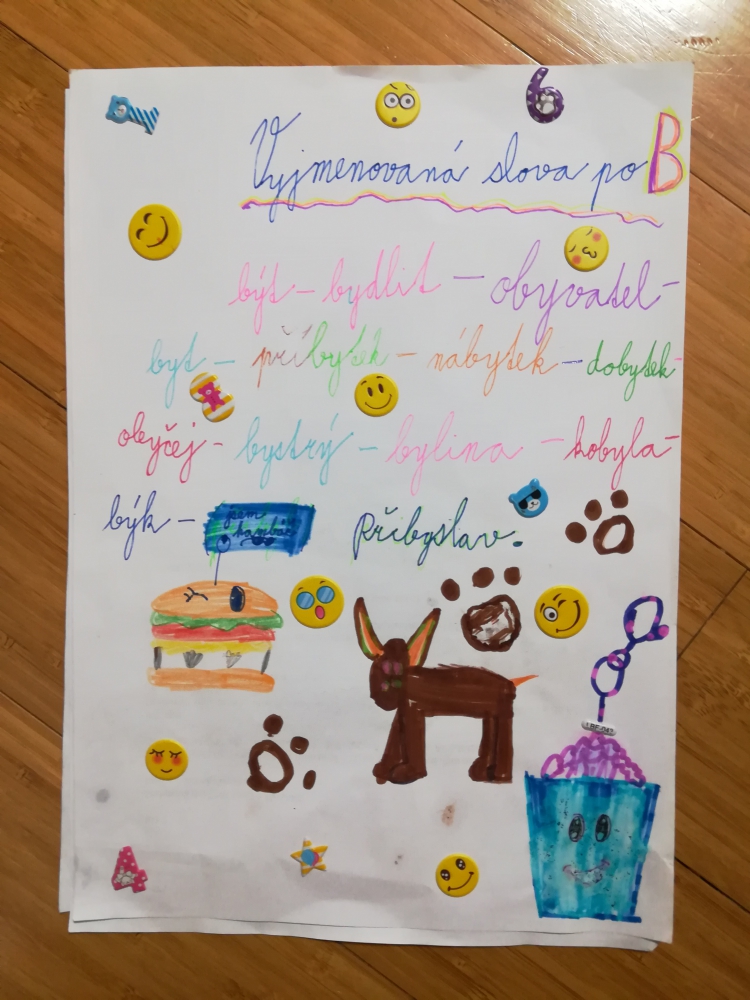 Vyjmenovaná slova po B
být – bydlit – obyvatel –
byt – příbytek – nábytek – dobytek –
obyčej – bystrý – bylina – kobyla –
býk – Přibyslav.
jsem